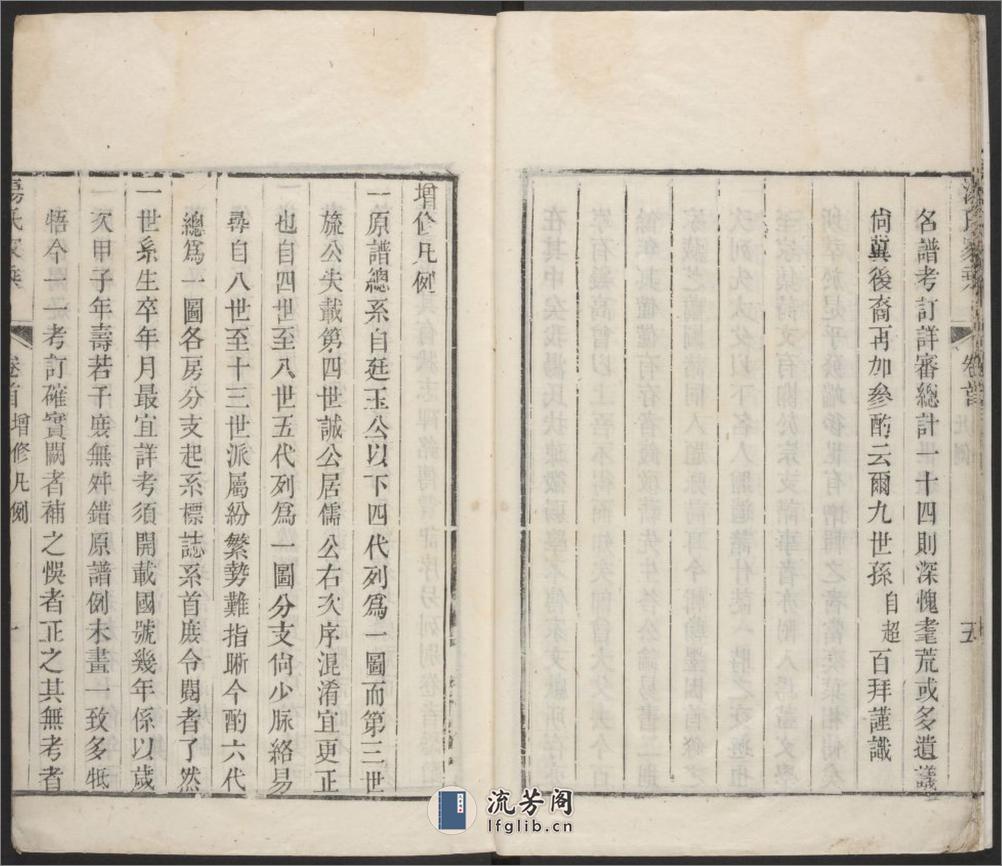 名譜考訂詳審總計一十四則深愧耄荒或多遺議
尙冀後裔再加參酌云爾九世孫自超百拜謹識
卷首
五
增修凡例
一原譜總系自廷玉公以下四代列爲一圖而第三世
旒公失載第四世誠公居儒公右次序混淆宜更正
也自四世至八世五代列爲一圖分支尙少脉絡易
尋自八世至十三世派屬紛繁勢難指晰今酌六代
總爲一圖各房分支起系標誌系首庶令閱者了然
一世系生卒年月最宜詳考須開載國號幾年係以歲
次甲子年壽若干庶無舛錯原譜例未畫一致多牴
悟今一一考訂確實闕者補之悞者正之其無考者
湯氏家乘
卷首
增修凡例
一
流芳阁
lfglib.cn